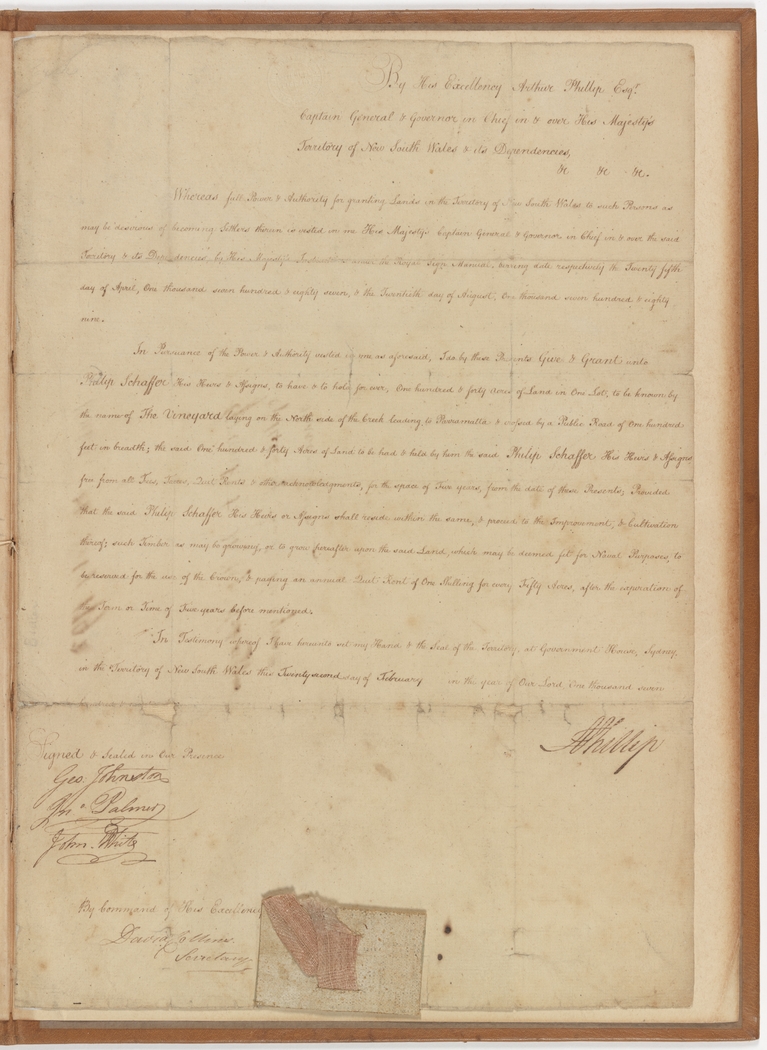 By His Excellency Arthur Phillip Esqr.
Captain General & Governor in Chief in & over His Majesty's
Territory of New South Wales & its Dependencies,
&c &c &c.
Whereas full Power & Authority for granting Lands in the Territory of New South Wales, to such Persons as
may be desirous of becoming Settlers therein is vested in me His Majesty's Captain General & Governor in Chief in & over the said
Territory & its Dependencies, by His Majesty's under the Royal Sign Manual, bearing date respectively the Twenty fifth
day of April, One thousand seven hundred & eighty seven, & the Twentieth day of August, One thousand seven hundred & eighty
nine.
In Pursuance of the Power & Authority vested in me as aforesaid, I do by these Presents Give & Grant unto
Philip Schaffer His Heirs & Assigns, to have & to hold for ever, One hundred & forty Acres of Land in One Lot, to be known by
the name of The Vineyard laying on the North side of the Creek leading to Parramatta & crossed by a Public Road of One hundred
feet in breadth; the said One hundred & forty Acres of Land to be had & held by him the said Philip Schaffer His Heirs & Assigns
free from all Fees, Taxes, Quit Rents & other acknowledgments, for the space of Five years, from the date of these Presents; Provided
that the said Philip Schaffer His Heirs or Assigns shall reside within the same, & proceed to the Improvement, & Cultivation
thereof; such Timber as may be growing, or to grow hereafter upon the said Land, which may be deemed fit for Naval Purposes, to
be reserved for the use of the Crown, & paying an annual Quit Rent of One Shilling for every Fifty Acres, after the expiration of
the Term or Time of Five years before mentioned.
In Testimony whereof I have hereunto set my Hand & the Seal of the Territory, at Government House, Sydney,
in the Territory of New South Wales this Twenty second day of February in the year of Our Lord One thousand seven
APhillip
Signed & Sealed in Our Presence
Geo. Johnston
Jno. Palmer
John White
By Command of His Excellency
David Collins
Secretary